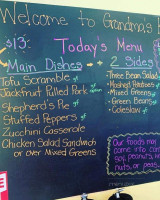 Welcome to Grandma's
$13
Today's Menu
Main Dishes + 2 Sides
Tofu Scramble
Jackfruit Pulled Pork
Shepherd's Pie
Stuffed Peppers
Zucchini Casserole
Chicken Salad Sandwich
or over Mixed Greens
Three Bean Salad
Mashed Potatoes
Mixed Greens
Green Beans
Coleslaw
Our foods may
come into
soy, peanuts,
nuts, or